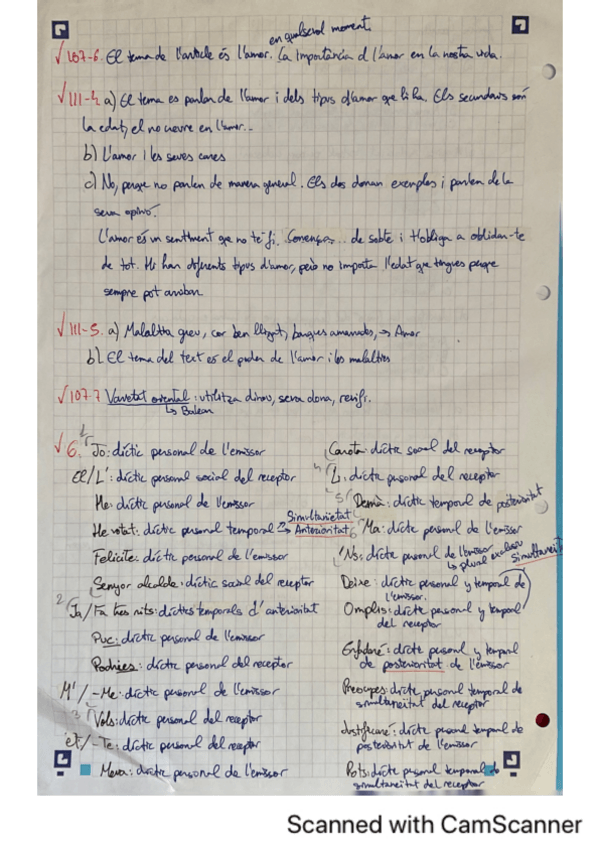 en qualsevol moment.
√ 107-6. El tema de l'article és l'amor. La importància d l'amor en la nostra vida.
√ 111-4 a) El tema es parlen de l'amor i dels tipus d'amor que hi ha. Els secundaris són
la edat, el no creure en l'amor..
b) L'amor i les seves cares
c) No, perque no parlen de manera general. Els dos donen exemples i parlen de la
seva opinió.
L'amor és un sentiment que no té fi. Comença... de sobte i t'obliga a oblidar-te
de tot. Hi han diferents tipus d'amor, però no importa l'edat que tengues perque
sempre pot arribar.
√ 111-5. a) Malaltia greu, cor ben lligat, → Amor
b) El tema del text es el poder de l'amor i les malalties
√ 107-7 Varietat oriental: utilitza dinou, seva dona,
↳ Balear
√ 6. Jo: díctic personal de l'emissor
El/L': díctic personal social del receptor
Me: díctic personal de l'emissor
He votat: díctic personal temporal → Simultanietat Anterioritat
Felicite: díctic personal de l'emissor
Senyor alcalde: díctic social del receptor
2 Ja/Fa tres nits: díctics temporals d'anterioritat
Puc: díctic personal de l'emissor
Podries: díctic personal del receptor
M'/-Me: díctic personal de l'emissor
Vols: díctic personal del receptor
et/-Te: díctic personal del receptor
Meva: díctic personal de l'emissor
Carota: díctic social del receptor
díctic personal del receptor
5 Demà: díctic temporal de posterioritat
Ma: díctic personal de l'emissor
'Ns: díctic personal de l'emissor
↳ plural exclusiu Simultaneïtat
Deixe: díctic personal y temporal de
l'emissor.
Ompliu: díctic personal y temporal
del receptor
Enfadaré: díctic personal y temporal
de posterioritat de l'emissor
Preocupes: díctic personal temporal de
simultaneïtat del receptor
Justificaré: díctic personal temporal de
posterioritat de l'emissor
Pots: díctic personal temporal de
simultaneïtat del receptor
Scanned with CamScanner